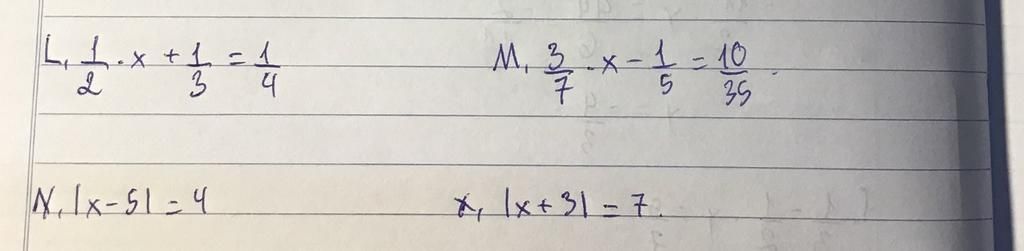 L, 1/2 . x + 1/3 = 1/4
M, 3/7 . x - 1/5 = 10/35.
N, |x-5| = 4
x, |x+3| = 7.